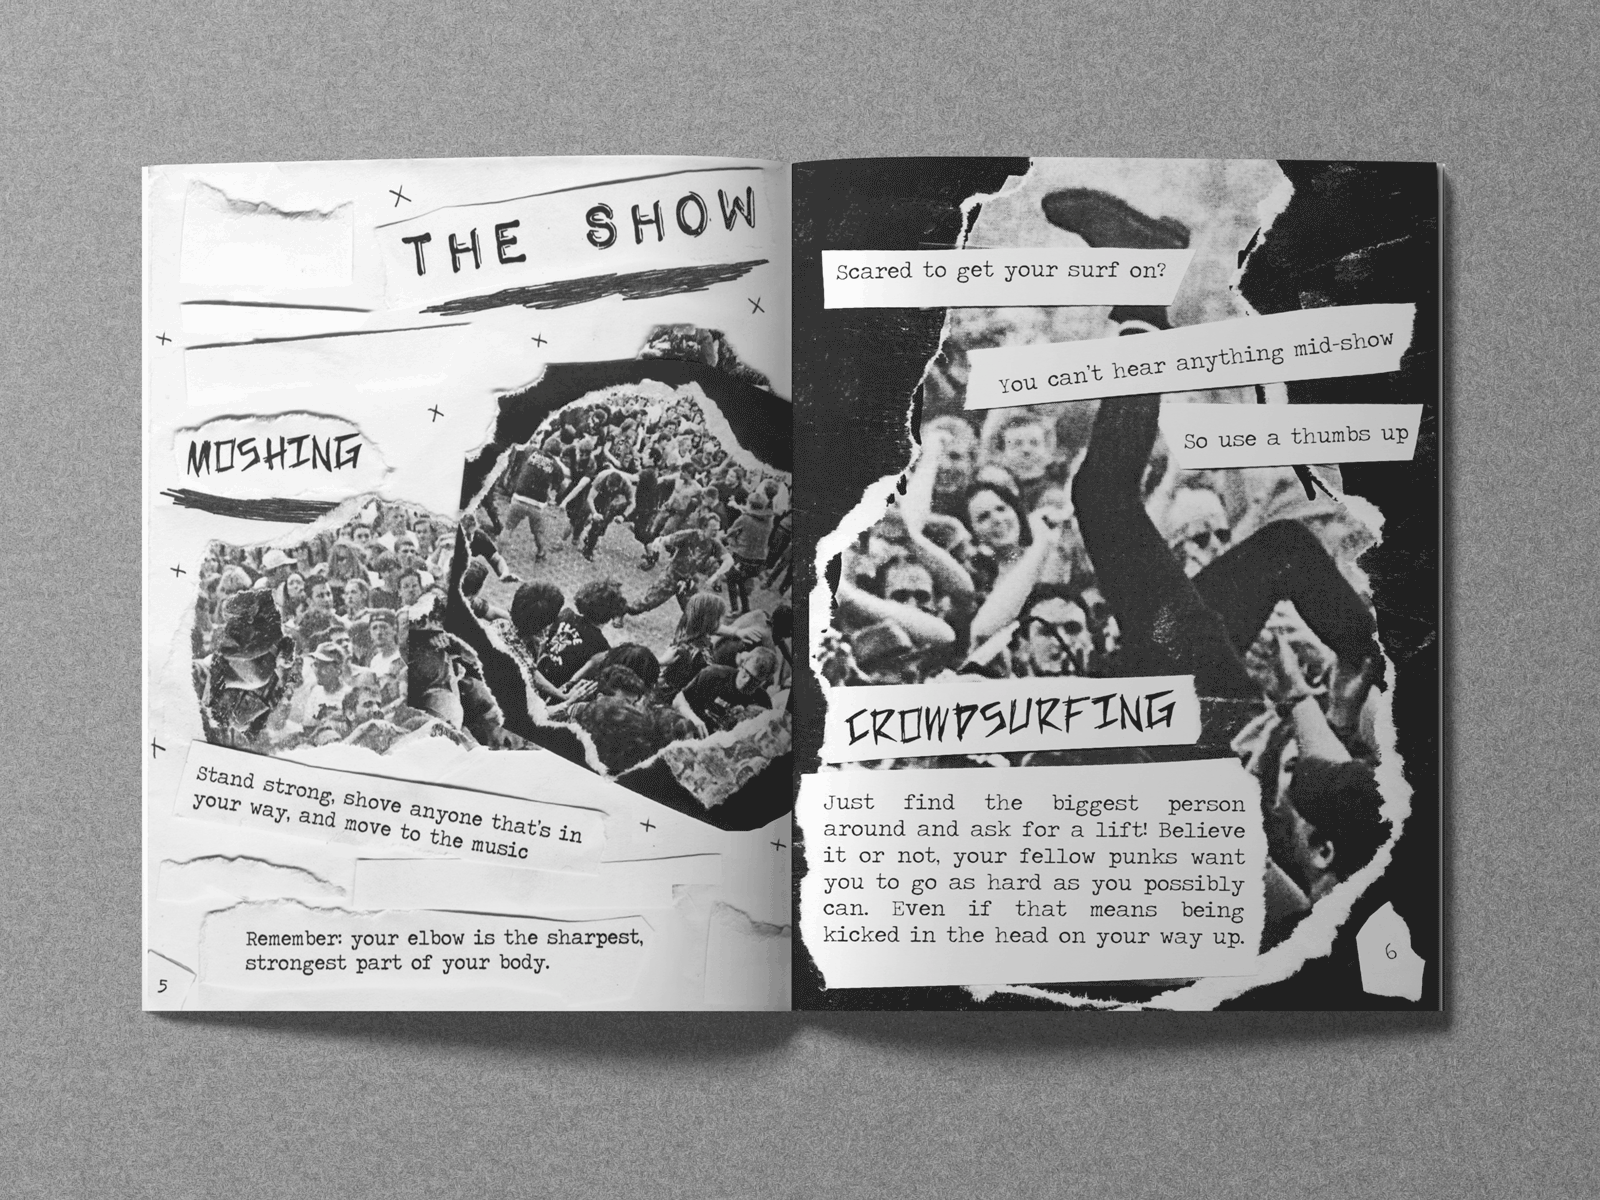 THE SHOW
MOSHING
Stand strong, shove anyone that's in
your way, and move to the music
Remember: your elbow is the sharpest,
strongest part of your body.
5
Scared to get your surf on?
You can't hear anything mid-show
So use a thumbs up
CROWDSURFING
Just find the biggest person
around and ask for a lift! Believe
it or not, your fellow punks want
you to go as hard as you possibly
can. Even if that means being
kicked in the head on your way up.
6